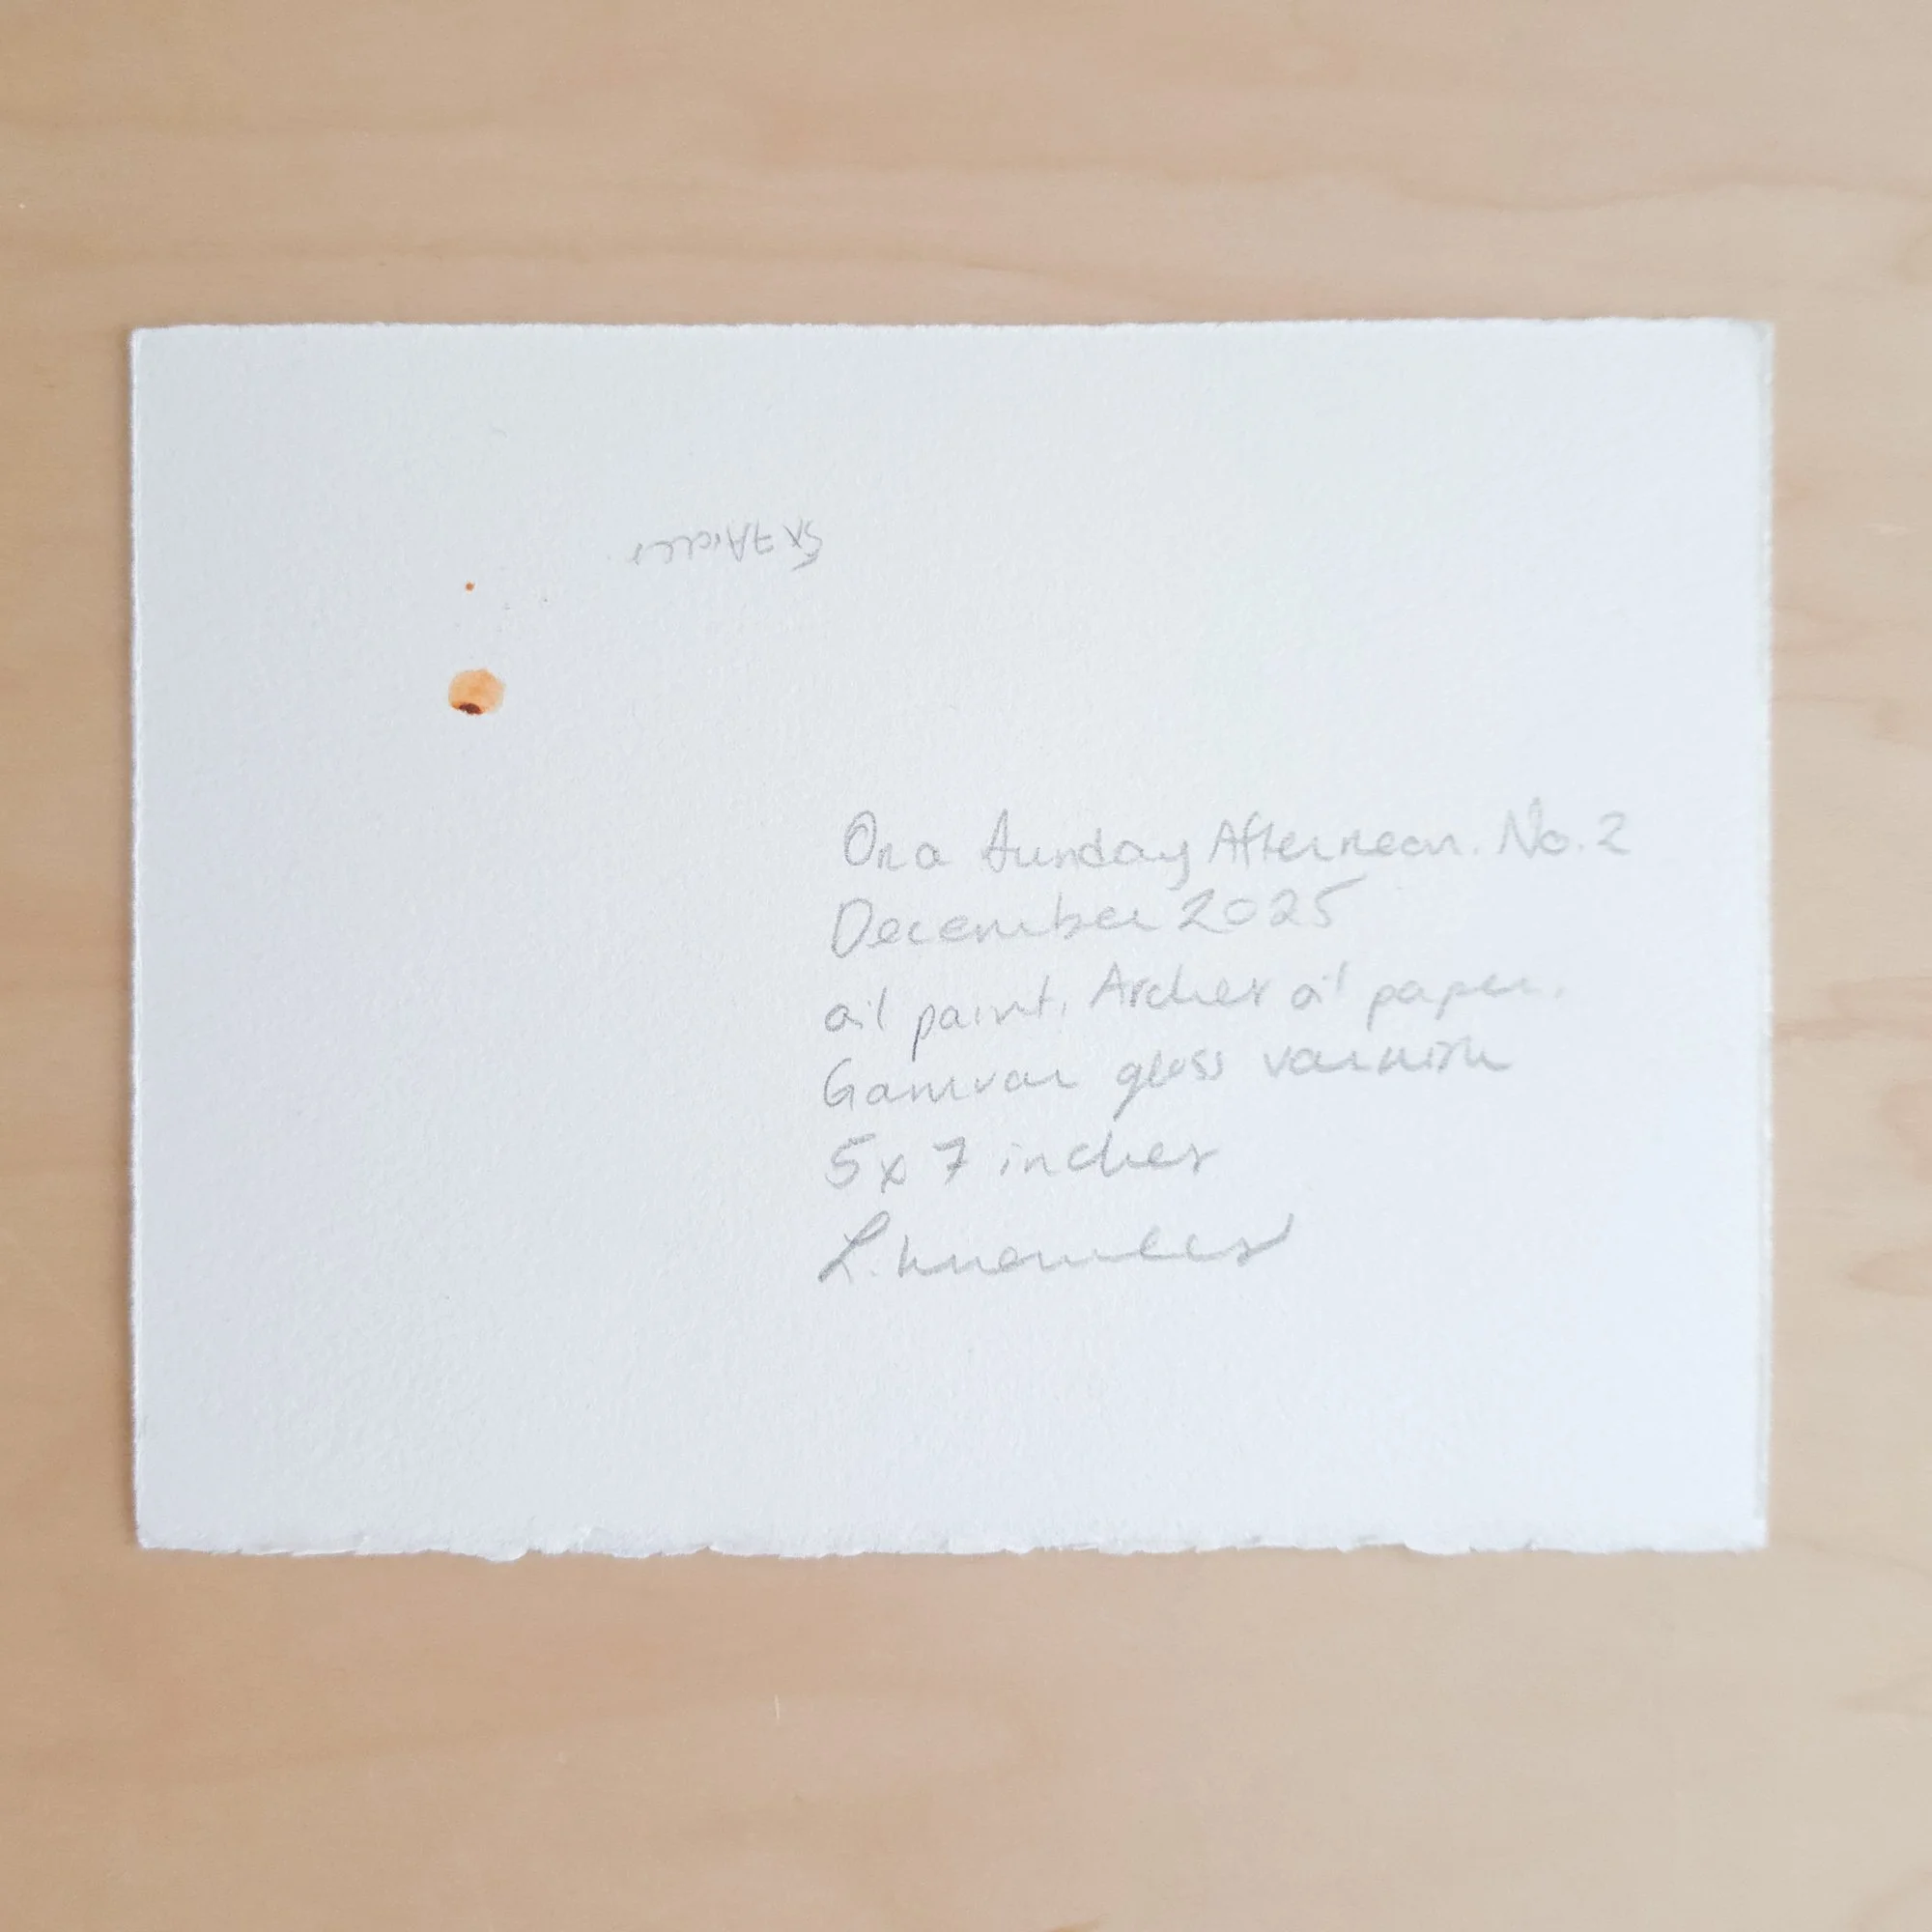 5x7 Arches
On a Sunday Afternoon. No. 2
December 2025
oil paint, Arches oil paper,
Gamvar gloss varnish
5x7 inches
L.